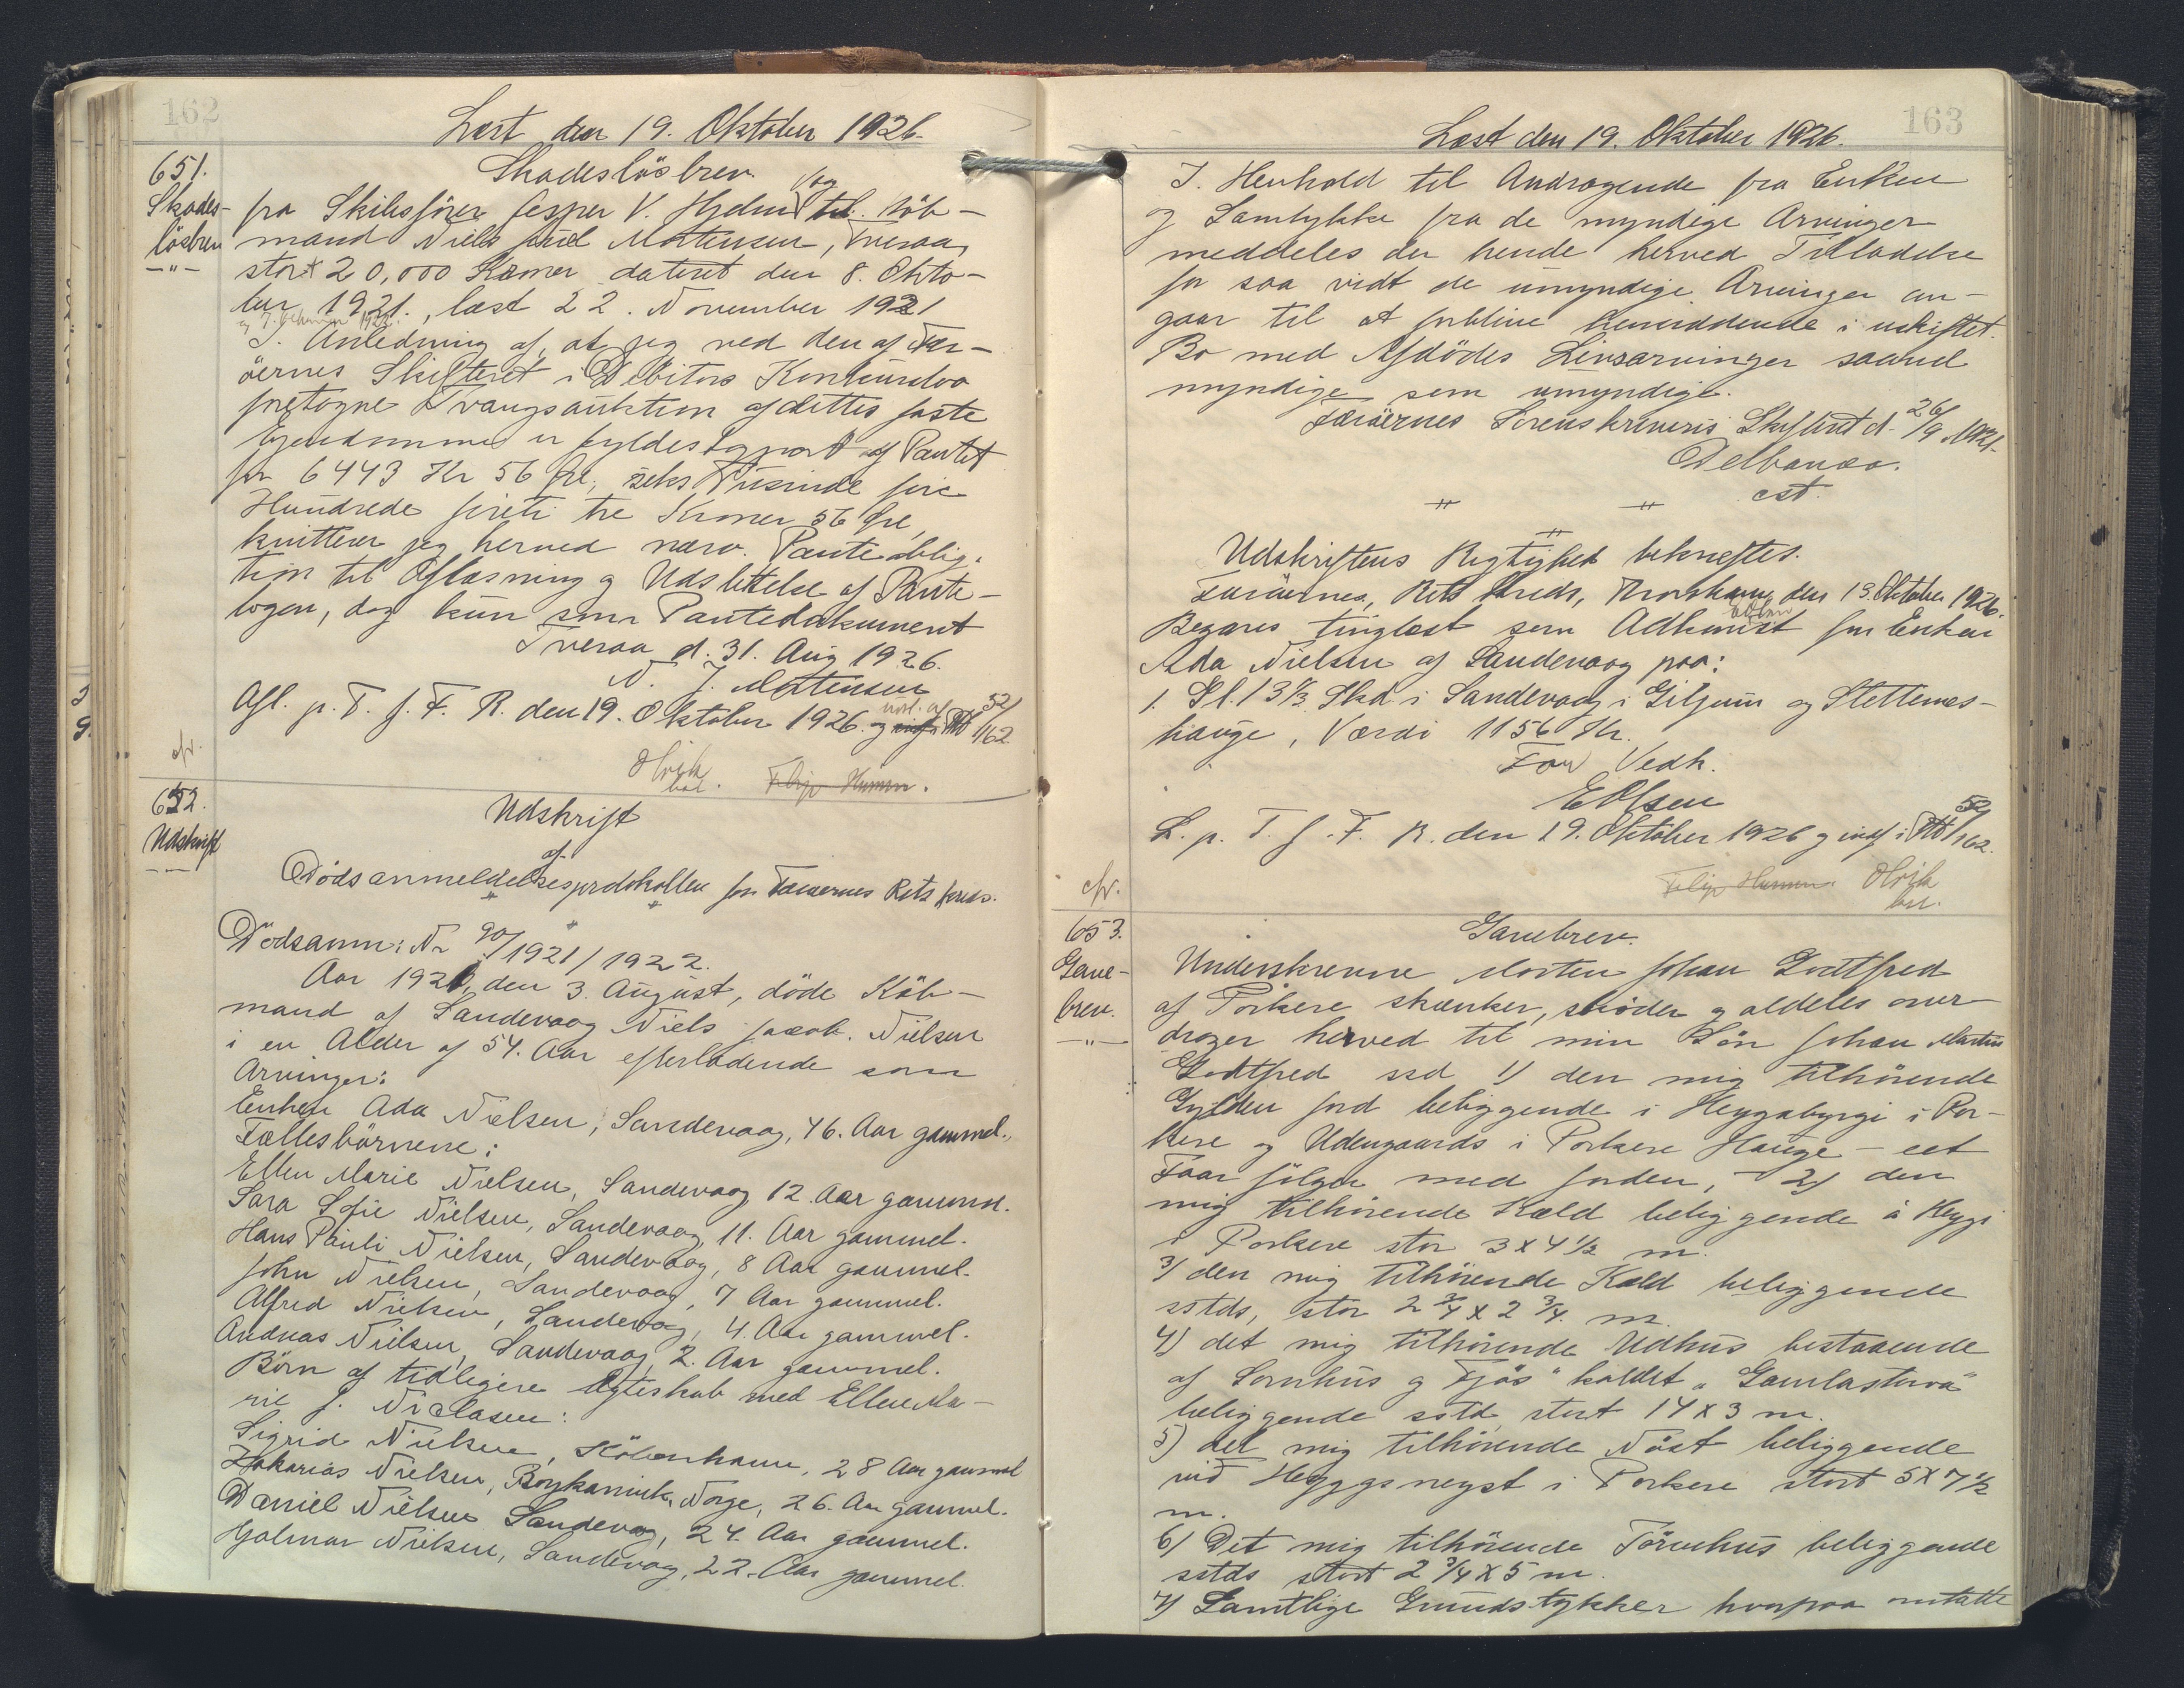 162
Læst den 19. Oktober 1926.
651.
Skades-
løsbrev
Skadesløsbrev
fra Skibsfører Jesper V. Hjelm og til Köb-
mand Niels Juel Mortensen, Tveraa,
stort 20,000 Kroner dateret den 8. Okto-
ber 1921., læst 22. November 1921
I Anledning af, at jeg ved den af Fær-
öernes Skifteret i Debitors Konkursbo
foretagne Tvangsauktion af dettes faste
Ejendomme er fyldestgjort af Pantet
for 6443 Kr 56 Øre, seks Tusinde fire
Hundrede firti tre Kroner 56 Øre,
kvitterer jeg herved nærv. Panteobliga-
tion til Aflæsning og Udslettelse af Pante-
bogen, dog kun som Pantedokument
Tveraa d. 31. Aug 1926.
N. J. Mortensen
Afl. p. T. f. F. R. den 19. Oktober 1926. og not. af 52/162
cfr.
652.
Udskrift
Udskrift
af
Dödsanmeldelsesprotokollen for Færöernes Retskreds.
Dödsanm: Nr 90/1921/1922.
Aar 1921, den 3. August, döde Köb-
mand af Sandevaag Niels Jacob Nielsen
i en Alder af 54. Aar efterladende som
Arvinger:
Enken Ada Nielsen, Sandevaag, 46. Aar gammel.,
Fællesbörnene:
Ellen Marie Nielsen, Sandevaag 12 Aar gammel.
Sara Sofie Nielsen, Sandevaag, 11. Aar gammel.
Hans Pauli Nielsen, Sandevaag, 8 Aar gammel.
John Nielsen, Sandevaag, 7 Aar gammel.
Alfred Nielsen, Sandevaag, 4. Aar gammel.
Andreas Nielsen, Sandevaag, 2. Aar gammel.
Börn af tidligere Ægteskab med Ellen Ma-
rie J. Niclasen:
Sigrid Nielsen, Köbenhavn, 28 Aar gammel
Zakarias Nielsen, Norge, 26. Aar gammel.
Daniel Nielsen Sandevaag, 24. Aar gammel.
Hjalmar Nielsen, Sandevaag, 22. Aar gammel.
163
Læst den 19. Oktober 1926.
I. Henhold til Andragende fra Enken
og Samtykke fra de myndige Arvinger
meddeles der hende herved Tilladelse
for saa vidt de umyndige Arvinger an-
gaar til at forblive hensiddende i uskiftet
Bo med Afdödes Livsarvinger saavel
myndige som umyndige.
Færöernes Sorenskriveris Skifteret d. 26/9 1921.
Delbanco.
cst.
Udskriftens Rigtighed bekræftes.
Færöernes Retskreds, Thorshavn, den 13. Oktober 1926.
Begæres tinglæst som Adkomst for Enken
Ada Nielsen af Sandevaag paa:
1. Gl. 13 1/3 Skd. i Sandevaag i Giljum og Stettines-
hauge, Værdi 1156 Kr.
For Vedk.
EOlsen
L. p. T. f. F. R. den 19. Oktober 1926 og indf i 52/162.
cfr.
653.
Gave-
brev.
Gavebrev.
Underskrevne Morten Johan Godtfred
af Porkere skænker, sköder og aldeles over-
drager herved til min Sön Johan Martin
Godtfred ssd 1) den mig tilhörende
Gylden Jord beliggende i Heygabyrgi i Por-
kere og Udengaards i Porkere Hauge - eet
Faar følger med Jorden, 2) den
mig tilhörende Kæld beliggende á Heygi
i Porkere stor 3 x 4 1/2 m.
3) den mig tilhörende Kæld beliggende
sstds, stor 2 3/4 x 2 3/4. m.
4) det mig tilhörende Udhus bestaaende
af Sornhus og "Fjös" kaldet "Gamlastova"
beliggende sstd, stort 14 x 3 m.
5) det mig tilhörende Nöst beliggende
við Heyggsneyst i Porkere stort 5 x 7 1/2
m.
6) Det mig tilhörende Törvehus beliggende
sstds stort 2 3/4 x 5 m.
7) Samtlige Grundstykker hvorpaa omtalte